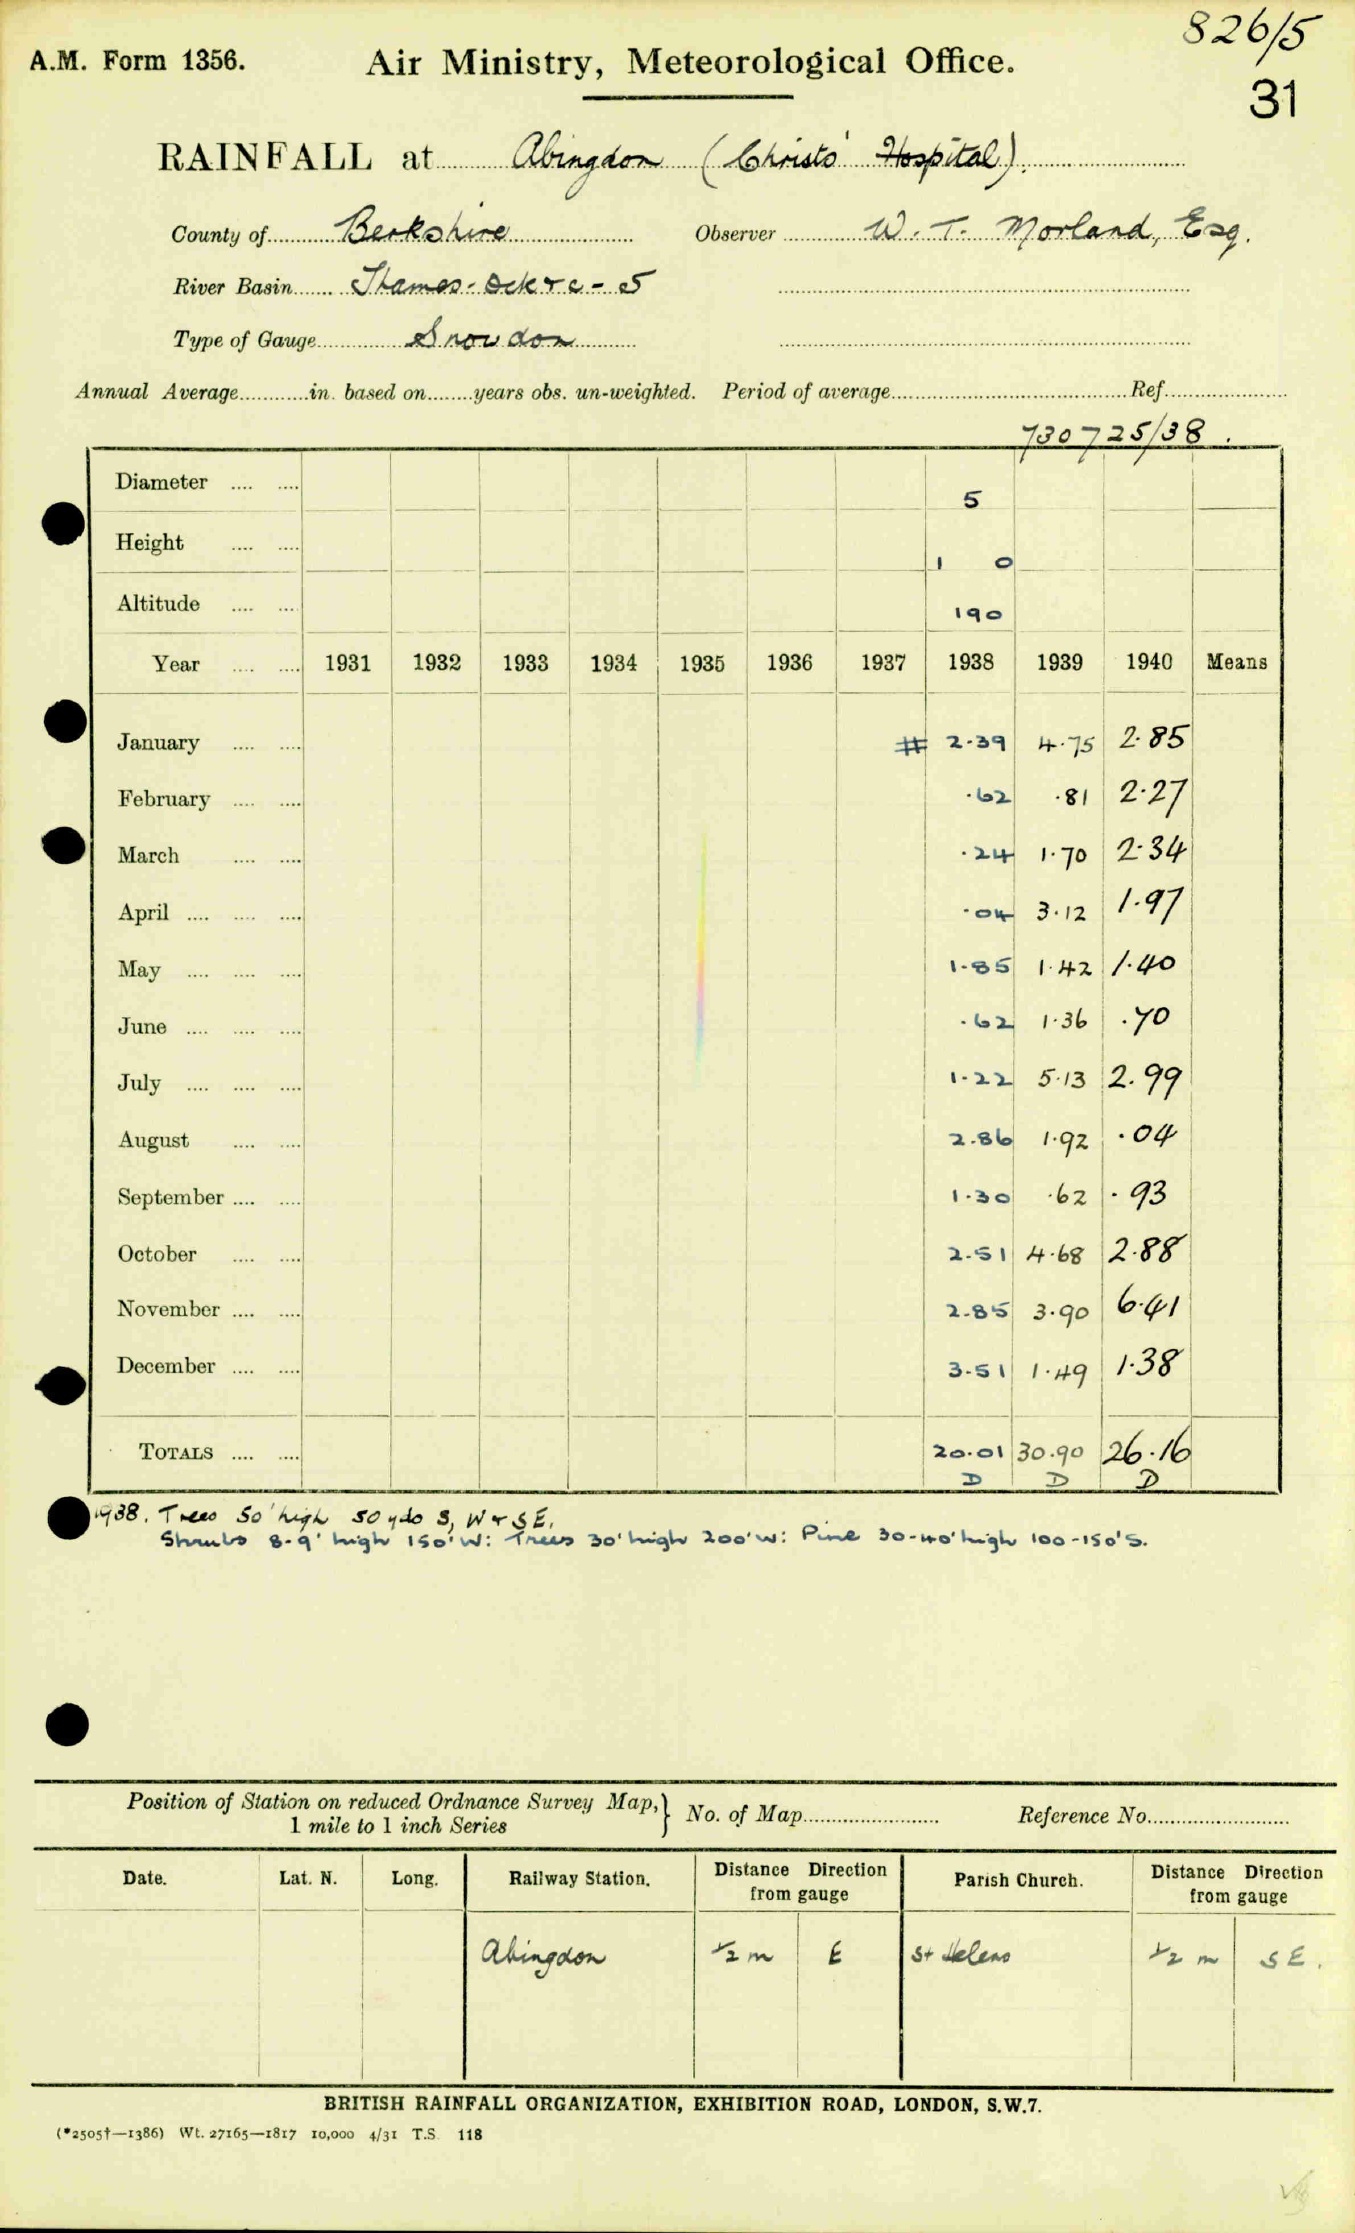 826/5
A.M. Form 1356. Air Ministry, Meteorological Office.
31
RAINFALL at Abingdon (Christs' Hospital).
County of Berkshire Observer W. T. Morland, Esq.
River Basin Thames - Ock &c - 5
Type of Gauge Snowdon
Annual Average in. based on years obs. un-weighted. Period of average Ref
730725/38.
Diameter 5
Height 1 0
Altitude 190
Year 1931 1932 1933 1934 1935 1936 1937 1938 1939 1940 Means
January # 2.39 4.75 2.85
February .62 .81 2.27
March .24 1.70 2.34
April .04 3.12 1.97
May 1.85 1.42 1.40
June .62 1.36 .70
July 1.22 5.13 2.99
August 2.86 1.92 .04
September 1.30 .62 .93
October 2.51 4.68 2.88
November 2.85 3.90 6.41
December 3.51 1.49 1.38
TOTALS 20.01 30.90 26.16
D D D
1938. Trees 50' high 50 yds S, W & SE.
Shrubs 8-9' high 150' W: Trees 30' high 200' W: Pine 30-40' high 100-150' S.
Position of Station on reduced Ordnance Survey Map, } No. of Map Reference No.
1 mile to 1 inch Series
Date. Lat. N. Long. Railway Station. Distance Direction from gauge Parish Church. Distance Direction from gauge
Abingdon 1/2 m E St Helens 1/2 m SE.
BRITISH RAINFALL ORGANIZATION, EXHIBITION ROAD, LONDON, S.W.7.
(*2505†—1386) Wt. 27165—1817 10,000 4/31 T.S. 118